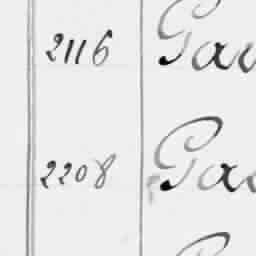 2116 Gav
2208 Gas